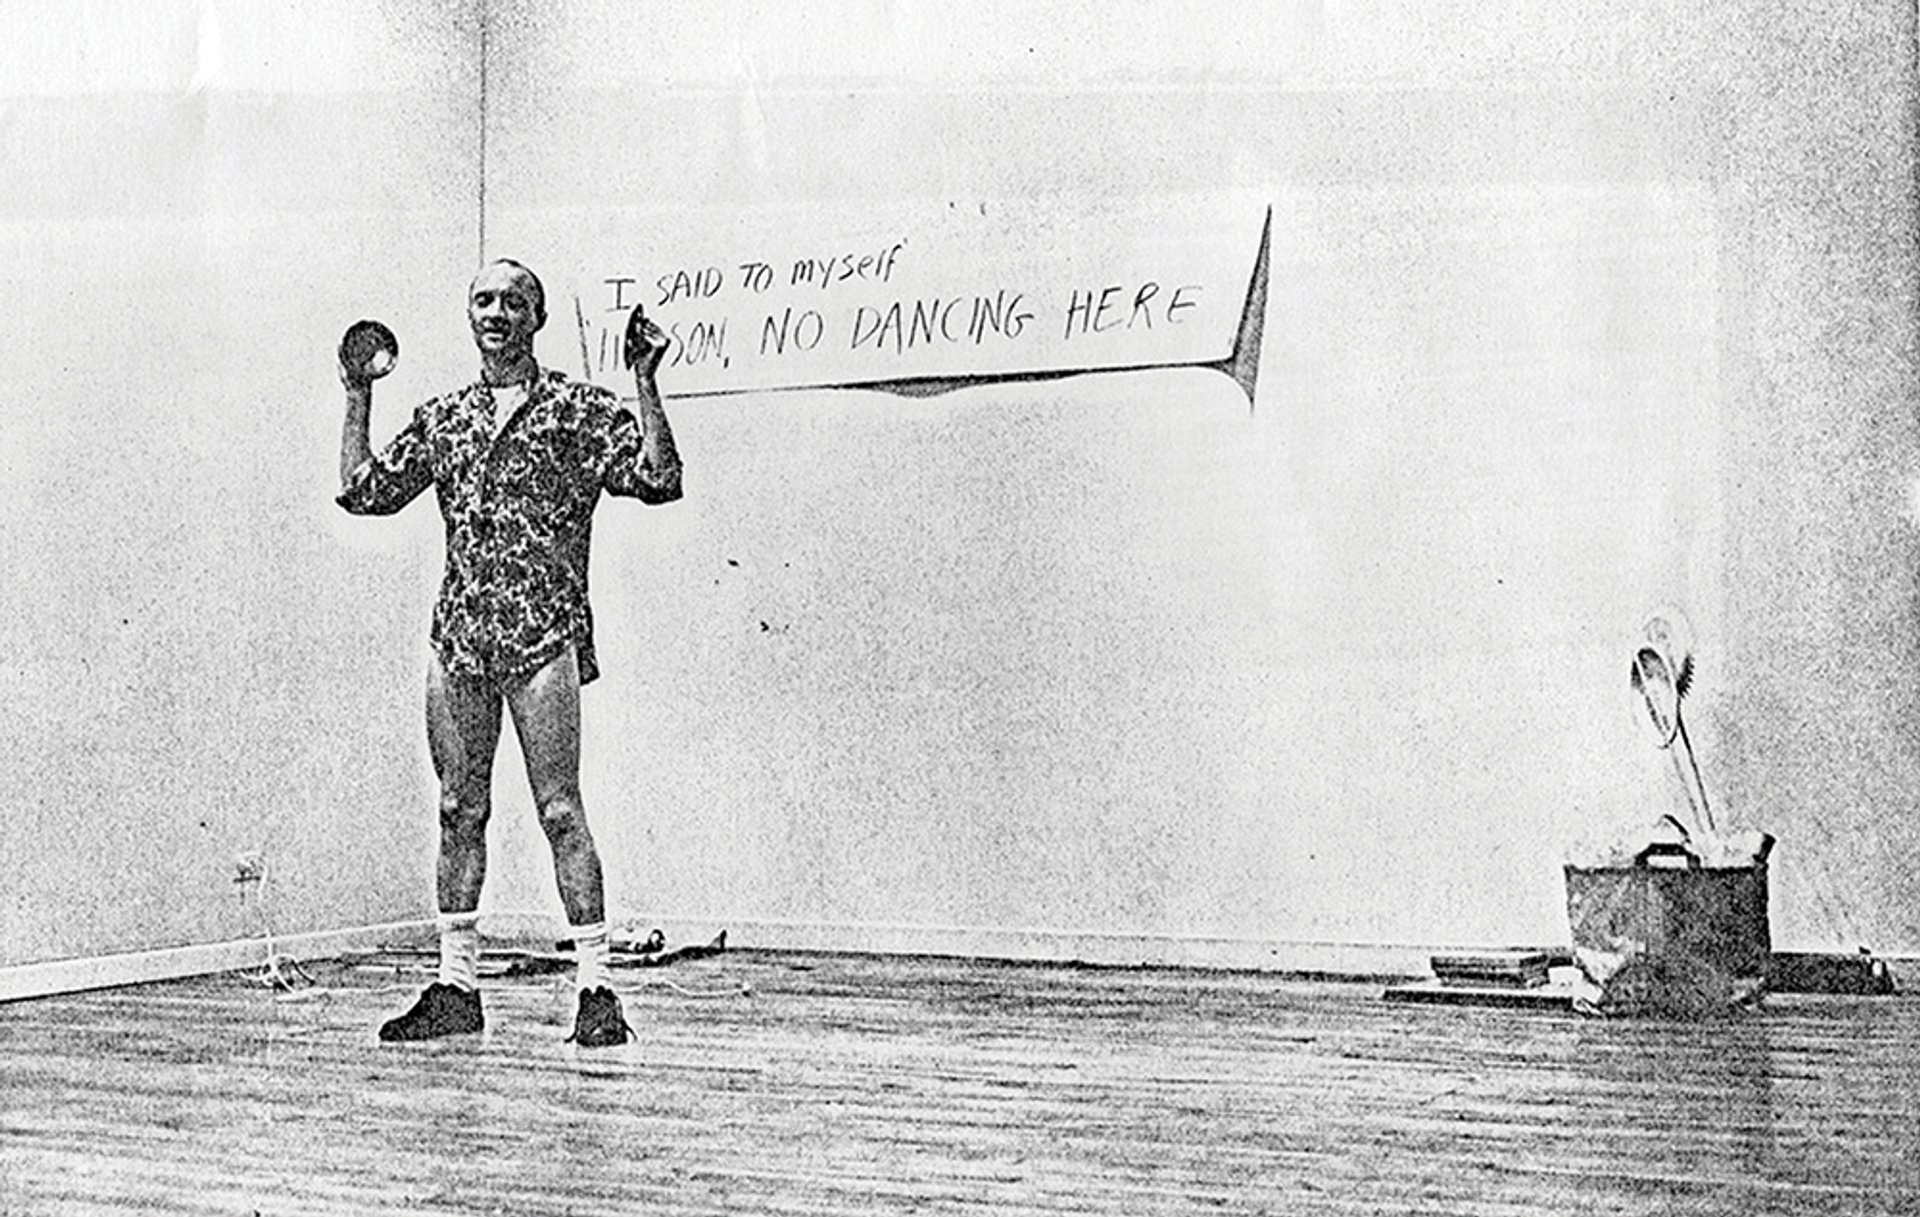 I SAID TO myself
SON, NO DANCING HERE